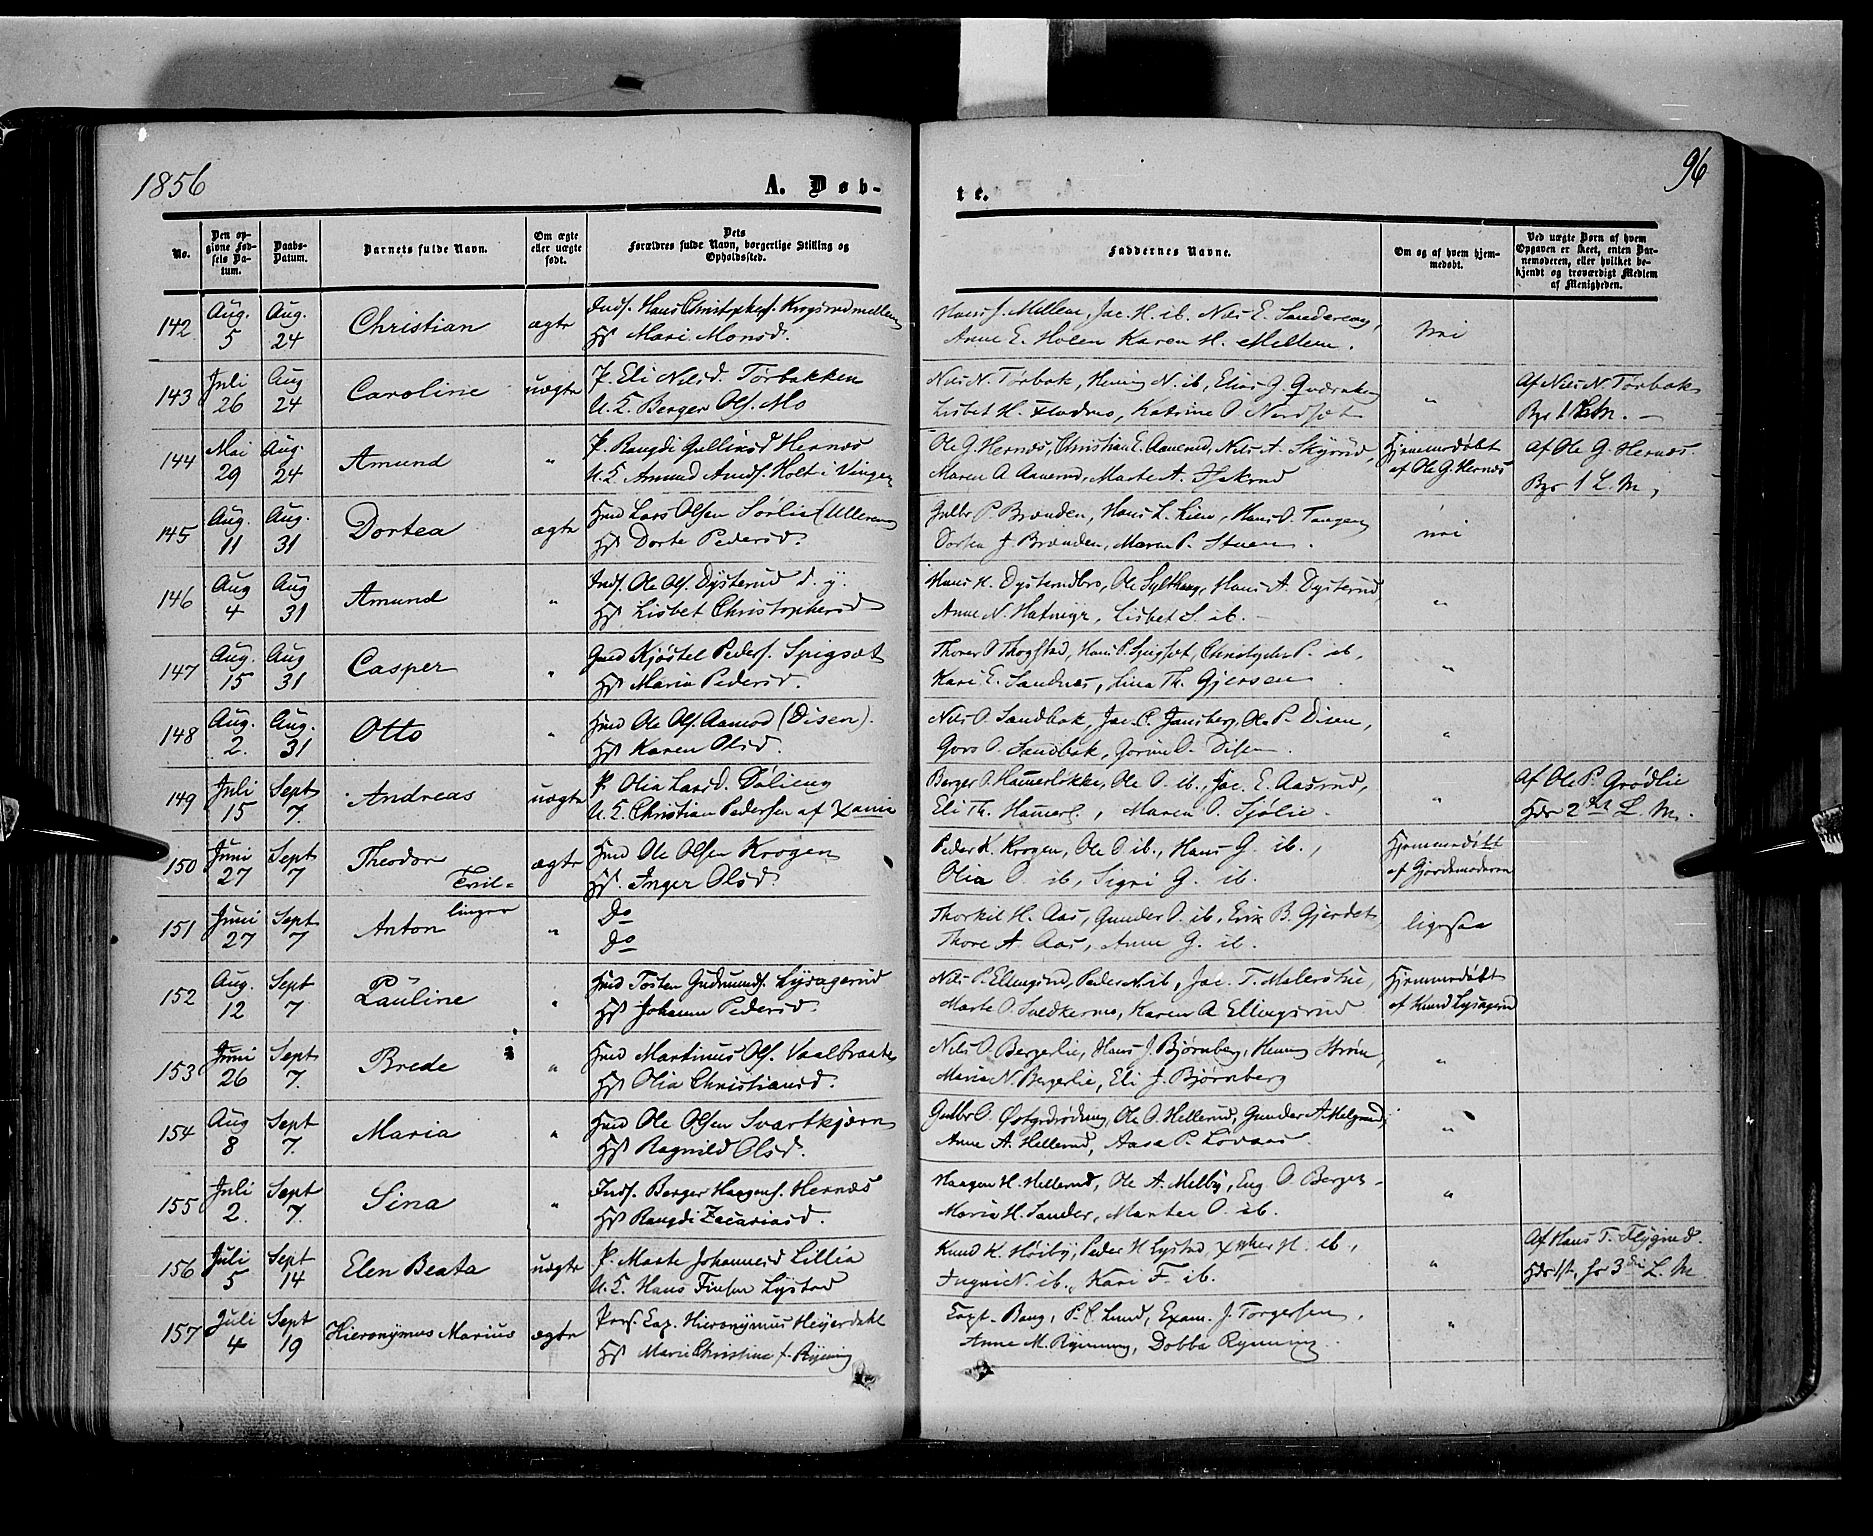 1856
A. Døb-
te.
96
No.
Den op-
givne Fød-
sels Da-
tum.
Daabs-
Datum.
Barnets fulde Navn.
Om ægte
eller uægte
født.
Dets
Forældres fulde Navn, borgerlige Stilling og
Opholdssted.
Faddernes Navne.
Om og af hvem hjem-
medøbt.
Ved uægte Børn af hvem
Opgaven er skeet, enten Bar-
nemoderen, eller hvilket be-
kjendt og troværdigt Medlem
af Menigheden.
142 Aug. 5 Aug. 24 Christian ægte
Inds. Hans Christophers. Krogsrudmellem
Hst Mari Monsd.
Hans J. Mellem, Jac. H. ib. Nils E. Sandereng,
Anne E. Holen Karen H. Mellem.
nei
143 Juli 26 Aug 24 Caroline uægte
P. Eli Nilsd. Torbakken
U. K. Berger Ols. Mo
Nils N. Torbak, Hening N. ib, Elias G.
Lisbet H. Fladmo, Katrine O. Nordset
"
Af Nils N. Torbak
144 Mai 29 Aug. 24 Amund "
P. Rangdi Gulliksd Hernæs
U. K. Amund Amds. Holt i Vinger
Ole G. Hernæs, Christian E. Aamerud, Nils A. Skyrud,
Maren A. Aamerud, Marte A.
Hjemmedøbt
af Ole G. Hernæs
Af Ole G. Hernæs.
1 L. M.
145 Aug. 11 Aug. 31 Dortea ægte
Hmd Lars Olsen Sørlie (Ulleren
Hst Dorte Pedersd.
Gulbr P. Brænden, Hans L. Lien, Hans O. Tangen
Dortea J. Brænden, Maren P. Stuen.
nei
146 Aug 4 Aug 31 Amund "
Inds. Ole Ols. Dysterud d. y.
Hst Lisbet Christophersd
Hans H. Dysterudbro, Ole Sylthaug, Hans A. Dysterud
Anne N. Hatmyr, Lisbet S. ib.
"
147 Aug. 15 Aug 31 Casper "
Gmd Kjøstel Peders. Spigset
Hst Maria Pedersd.
Thorer O Thogstad, Hans P. Spigset, Christopher P. ib,
Kari E. Sandnæs, Lina Th. Gjersøen
"
148 Aug. 2. Aug. 31 Otto "
Hmd Ole Ols. Aamod (Disen).
Hst Karen Olsd.
Nils O. Sandbak, Jac. C. Jansberg, Ole P. Disen,
Goro O. Sandbak, Jorine O. Disen.
"
149 Juli 15 Sept 7. Andreas uægte
P. Olia Larsd. Sølieng
U. K. Christian Pedersen af
Berger O. Hamerløkke, Ole O. ib., Jac. E. Aasrud,
Eli Th. Hamerl., Maren O. Sjølie.
"
Af Ole P. Grødlie
2den L. M.
150 Juni 27 Sept 7 Theodor ægte
Tvil-
Hmd Ole Olsen Krogen
Hst. Inger Olsd.
Peder K. Krogen, Ole O. ib., Hans G. ib.,
Olia O. ib, Signi G. ib.
Hjemmedøbt
af Gjordemoderen
151 Juni 27 Sept 7 Anton "
linger
Do
Do
Thorkil H. Aas, Gunder O. ib, Erik B. Gjerdet,
Thore A. Aas, Anne G. ib.
ligesaa
152 Aug. 12 Sept 7 Pauline "
Hmd Tosten Gudmunds. Lysagerud
Hst Johanne Pedersd.
Nils P. Ellingsrud, Peder N. ib, Jac. T. Malerstue,
Marte O. Svedkermo, Karen A Ellingsrud
Hjemmedøbt
af Knud Lysagerud
153 Juni 26 Sept 7. Brede "
Hmd Martinus Ols. Vaalbraate
Hst Olia Christiansd.
Nils O. Bergerlie, Hans J. Bjørnberg, Hening Strøm,
Maria N. Bergerlie, Eli J. Bjørnberg
"
154 Aug 8 Sept 7. Maria "
Hmd Ole Olsen Svartkjærn
Hst Ragnild Olsd.
Gulbr O. Østgdrødning, Ole O. Hellerud, Gunder A.
Anne A. Hellerud, Aasa P. Lovaas
"
155 Juli 2. Sept 7. Sina "
Inds. Berger Haagens. Hernæs
Hst Rangdi Zacariasd.
Haagen H. Hellerud, Ole A. Melby, Eng. O. Berger-
Maria H. Sander, Martea O. ib.
"
156 Juli 5 Sept 14 Elen Beata uægte
P. Marte Johannesd Lillia
U. K. Hans Finsen Lystad
Knud K. Høiby, Peder H Lystad, Xpher H. ib,
Ingri N. ib., Kari F. ib.
"
Af Hans T. Flygind.
3die L. M
157 Juli 4 Sept 19 Hieronymus Marius ægte
Pers. Cap. Hieronymus Heyerdahl
Hst Marie Christine f. Rynning
Capt. Bang, P. C. Lund, Exam. J. Torgersen,
Anne M. Rynning, Dobba Rynning.
"